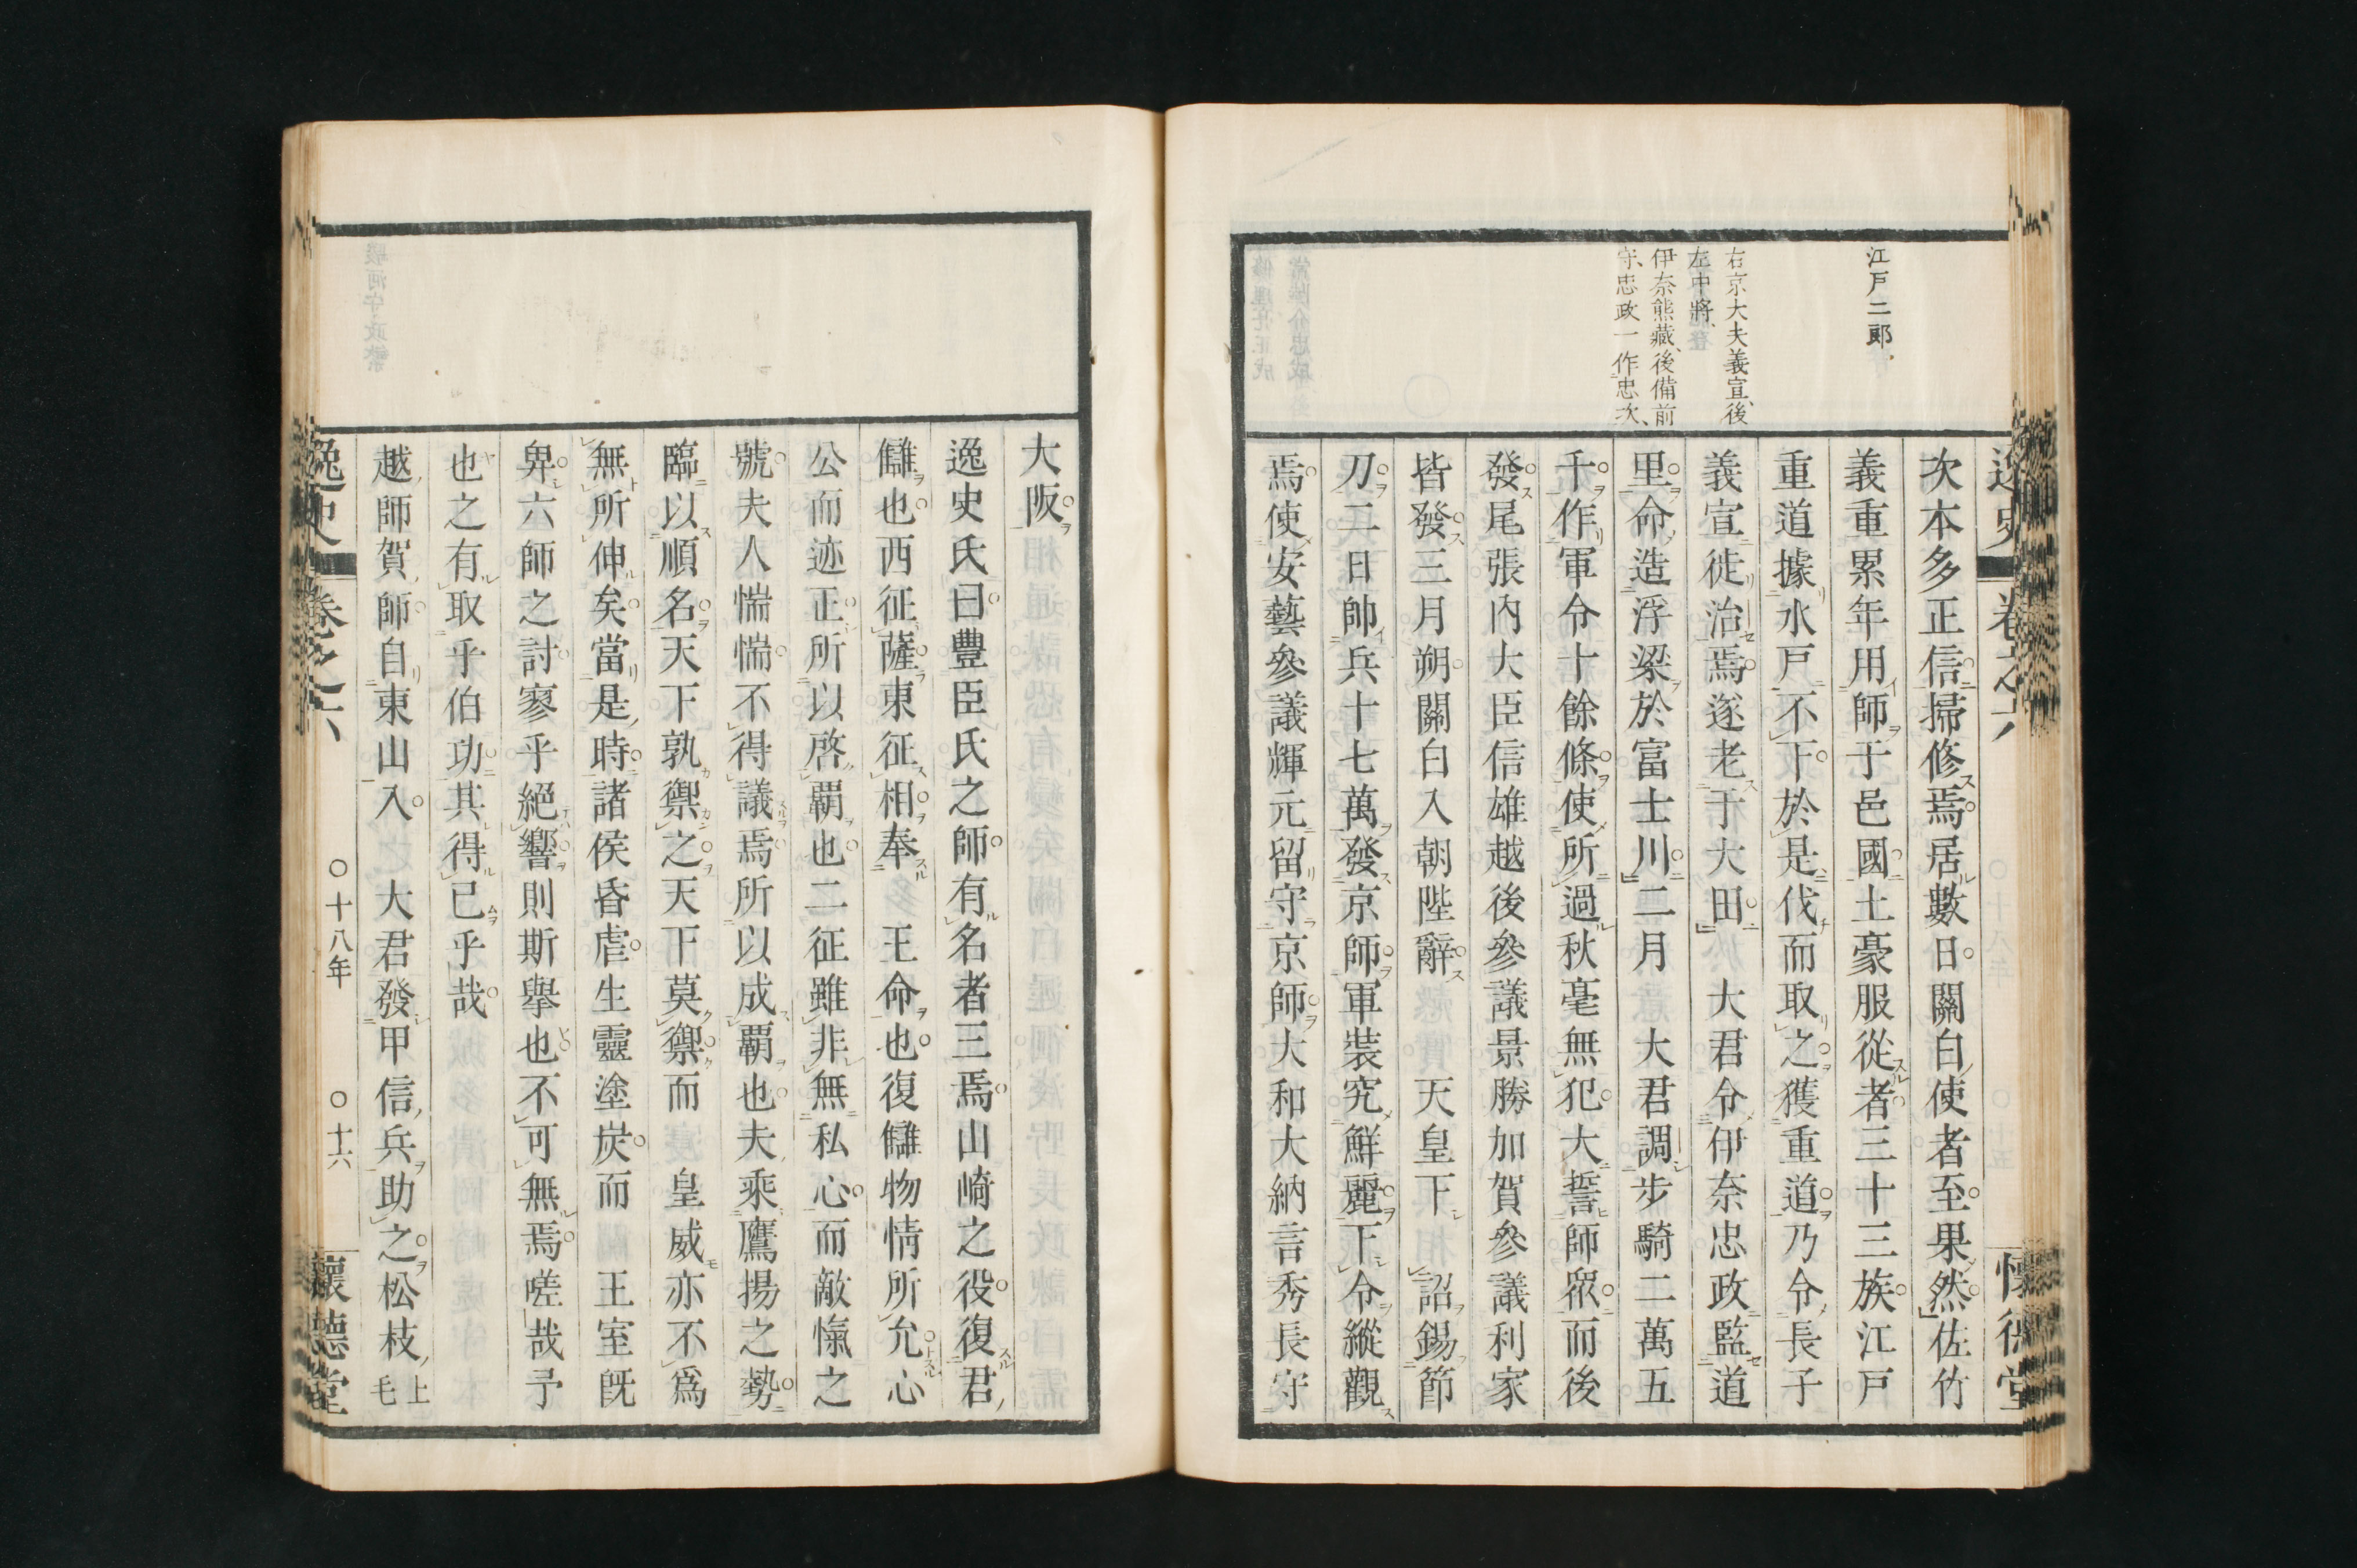 江戸二郎
右京大夫義宣、後
左中將、
伊奈熊藏、後備前
守、忠政一作忠次、
次本多正信掃修焉居數日關白使者至果然佐竹
義重累年用師于邑國土豪服從者三十三族江戸
重道據水戸不下於是伐而取之獲重道乃令長子
義宣徙治焉遂老于大田 大君令伊奈忠政監道
里命造浮梁於富士川二月 大君調步騎二萬五
千作軍令十餘條使所過秋毫無犯大誓師眾而後
發尾張內大臣信雄越後參議景勝加賀參議利家
皆發三月朔關白入朝陛辭 天皇下詔錫節
刀二日帥兵十七萬發京師軍裝究鮮麗下令縱觀
焉使安藝參議輝元留守京師大和大納言秀長守
大阪
逸史氏曰豐臣氏之師有名者三焉山崎之役復君
讎也西征薩東征相奉 王命也復讎物情所允心
公而迹正所以啓覇也二征雖非無私心而敵愾之
號夫人惴惴不得議焉所以成覇也夫乘鷹揚之勢
臨以順名天下孰禦之天下莫禦而 皇威亦不爲
無所伸矣當是時諸侯昏虐生靈塗炭而 王室既
卑六師之討寥乎絕響則斯擧也不可無焉嗟哉予
也之有取乎伯功其得已乎哉
越師賀師自東山入 大君發甲信兵助之松枝上毛
逸史 卷之六 ○十八年 ○十六 懷德堂